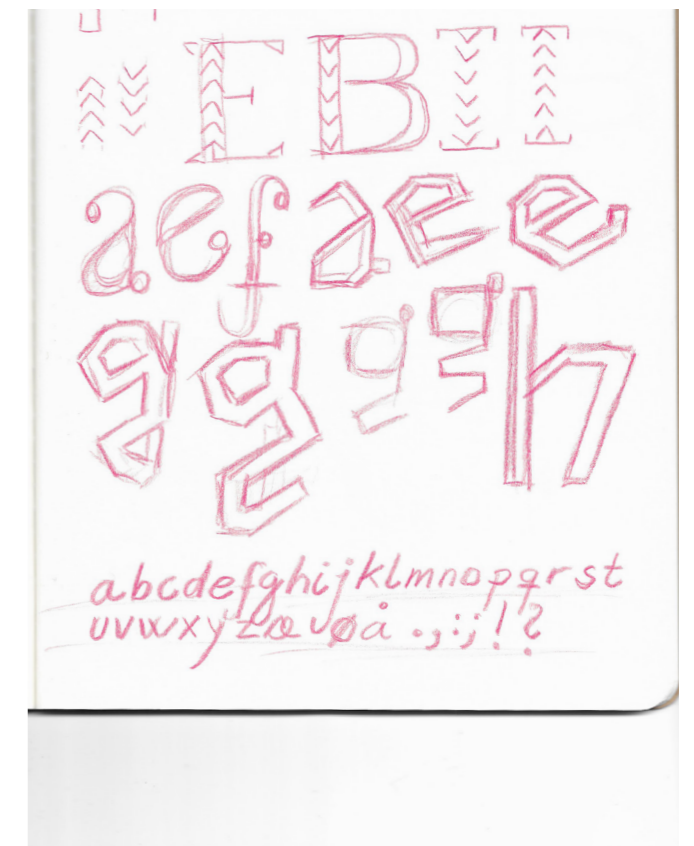 E B I I
a e f a e e
g g g g h
a b c d e f g h i j k l m n o p q r s t
u v w x y z æ ø å . , : ; ! ?